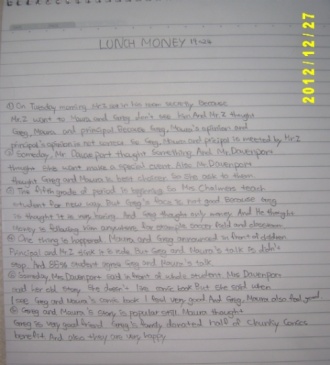 LUNCH MONEY
2012/12/27
① On Tuesday morning
Mr.Z want to Maura and Greg don't see him And Mr.Z thought
Greg, Maura and principal Because Greg, Maura's opinion and
principal's opinion is not success. So Greg, Maura and principal is by Mr.Z
② Someday, Mr. Davenport thought something And Mr. Davenport
thought She want make a special event. Also Mr. Davenport
thought Greg and Maura is best So She ask to them
③ The fifth grade of period is beginning. So Mrs. Chalmers teach
student for new way. But Greg's face is not good Because Greg
is thought it is very boring. And Greg thought only money. And He thought
Money is following him anywhere for example soccer field and classroom
④ One thing is happened. Maura and Greg announced in front of children
Principal and Mr.Z. Greg and Maura's talk is didn't
stop. And 855 student Greg and Maura's talk.
⑤ Someday, Mrs. Davenport said in front of whole student. Mrs. Davenport
said her old story. She doesn't like comic book But She said when
I see Greg and Maura's comic book I feel very good And Greg, Maura also feel good
⑥ Greg and Maura's story is popular still. Maura thought
Greg is very good friend. Greg's family donated half of Chunky Comics
benefit And also they are very happy